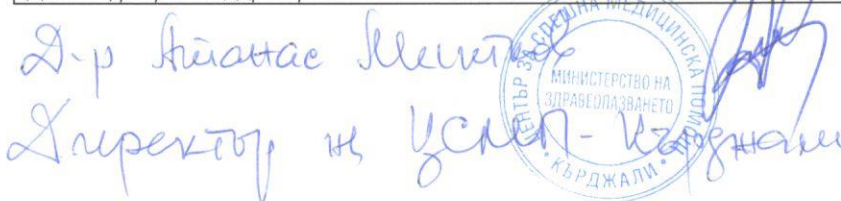 Д-р Атанас Митков
Директор на ЦСМП - Кърджали
ЦЕНТЪР ЗА СПЕШНА МЕДИЦИНСКА ПОМОЩ
МИНИСТЕРСТВО НА
ЗДРАВЕОПАЗВАНЕТО
• КЪРДЖАЛИ •